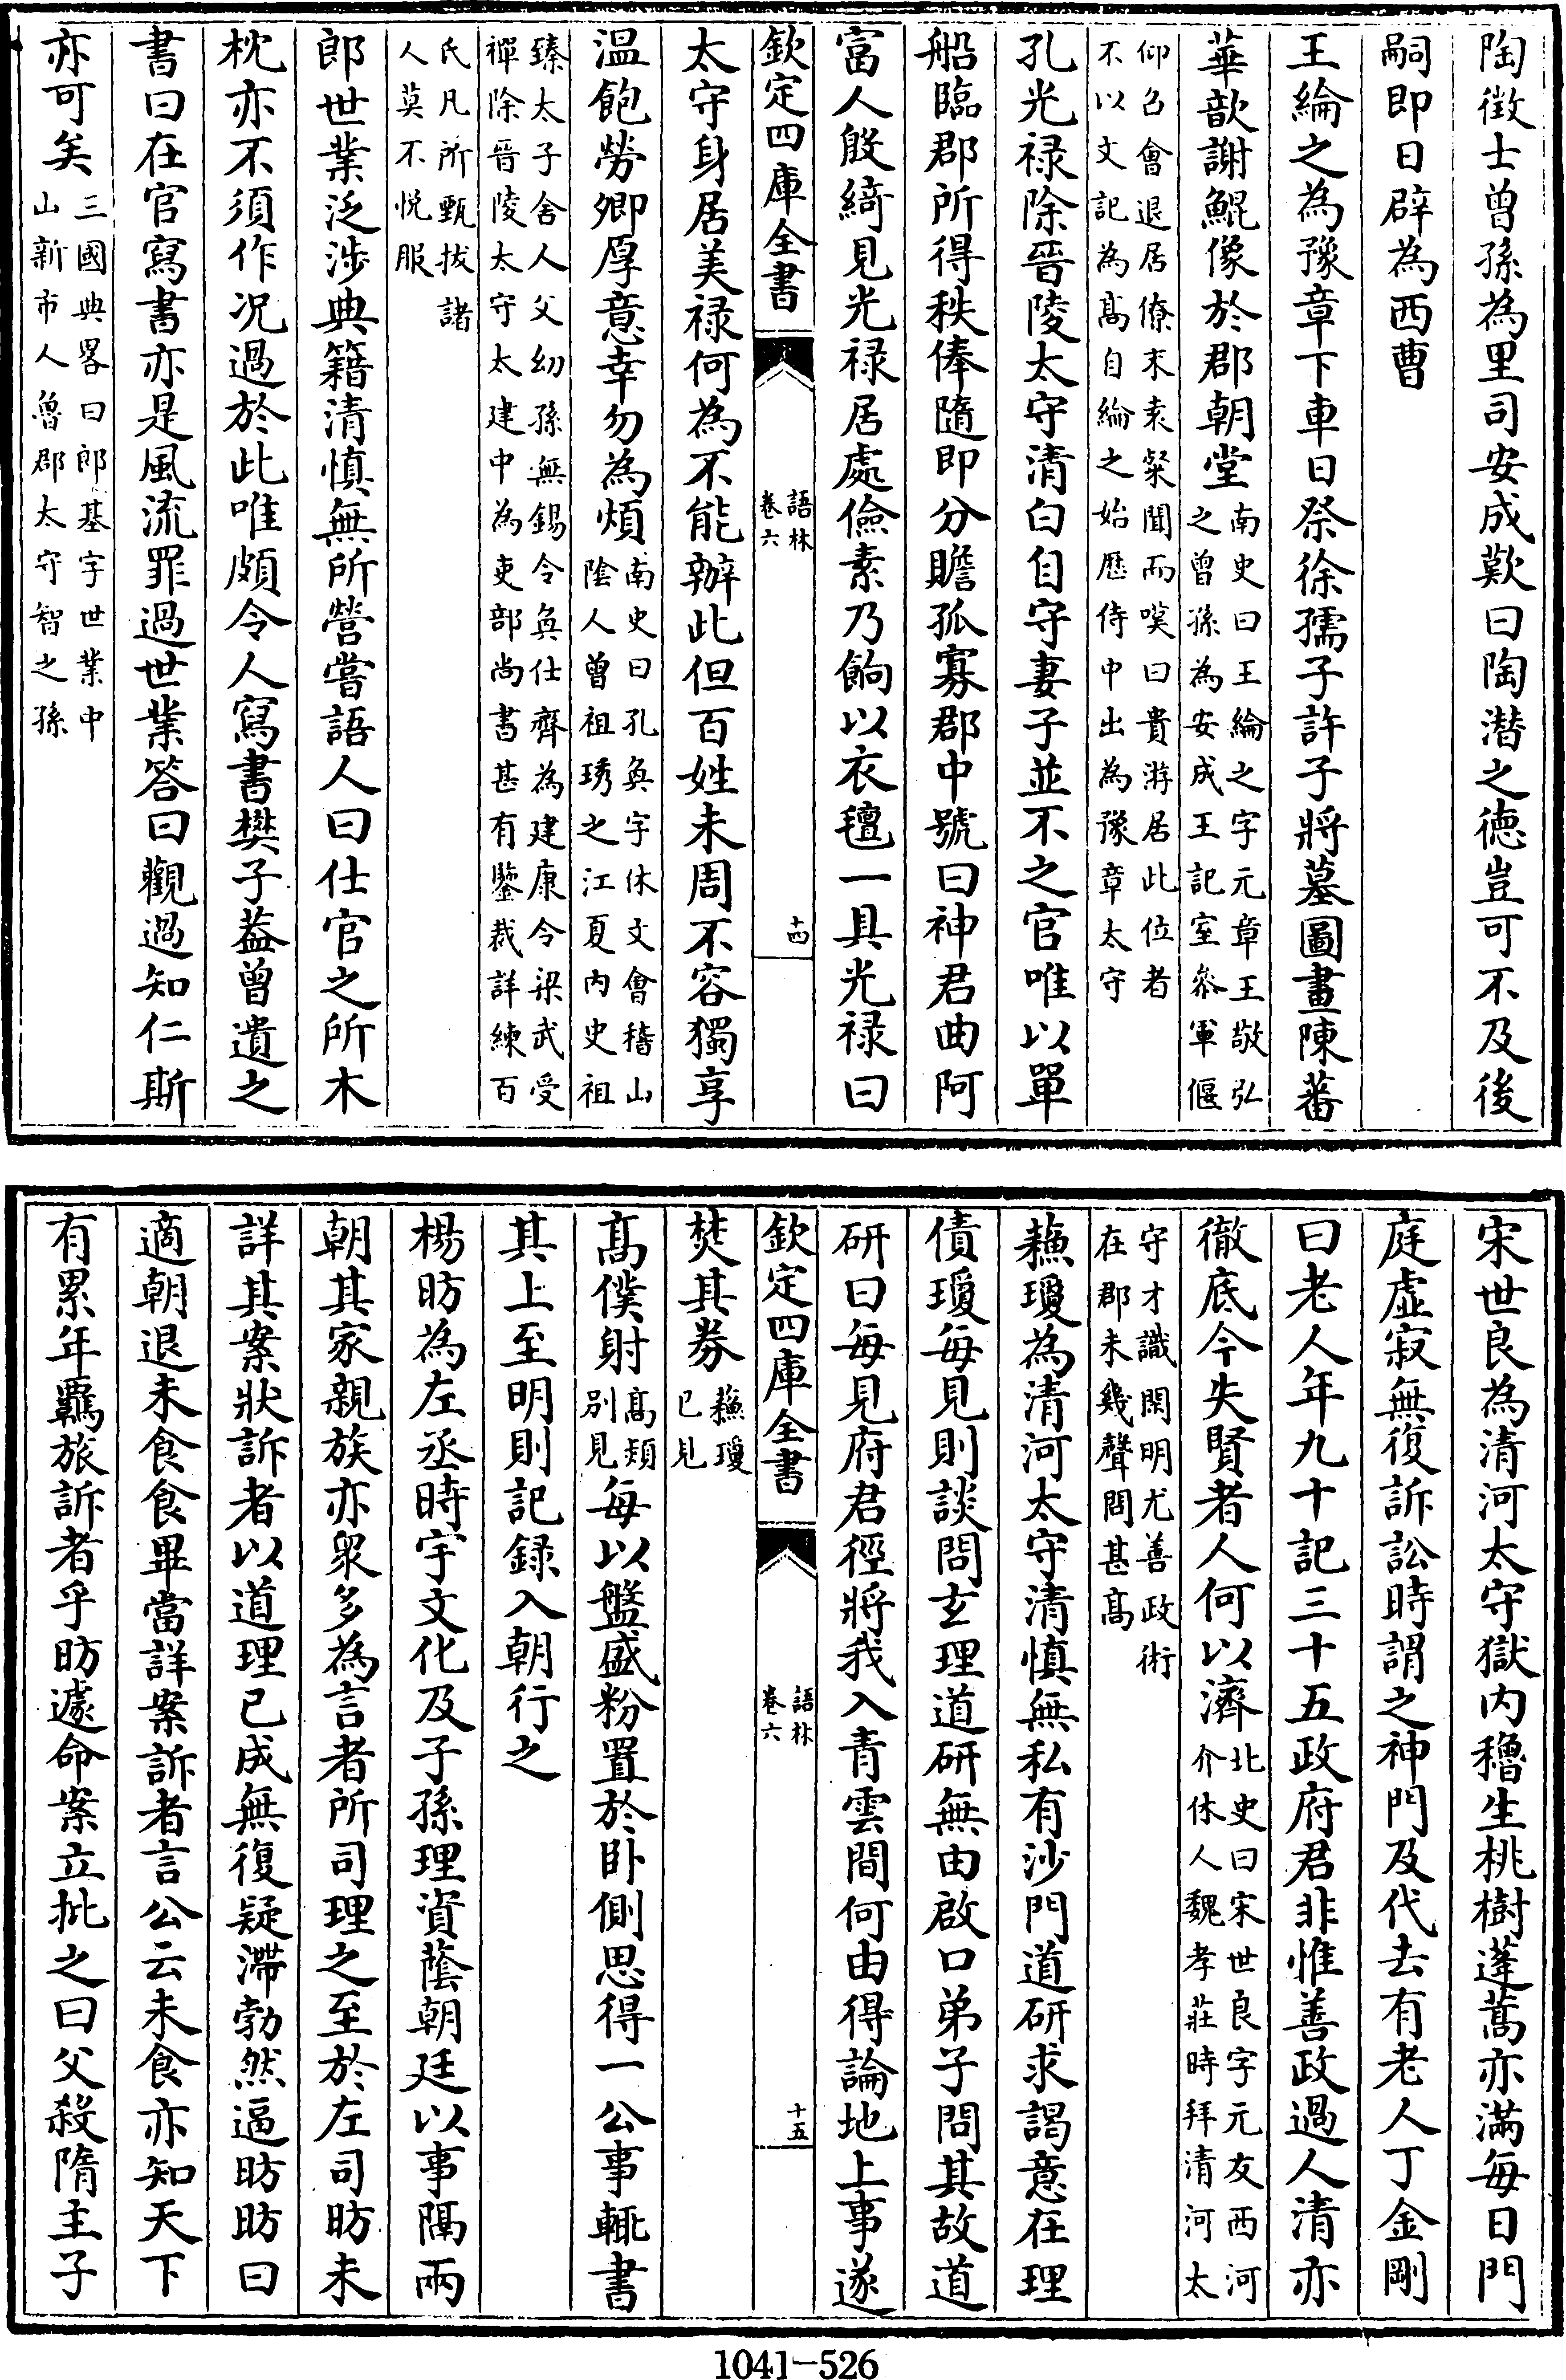 陶徴士曽孫為里司安成歎曰陶潜之徳豈可不及後
嗣即日辟為西曹
王綸之為豫章下車日祭徐孺子許子將墓圖畫陳蕃
華歆謝鯤像於郡朝堂南史曰王綸之字元章王敬弘
之曽孫為安成王記室叅軍偃
仰召會退居僚末袁粲聞而嘆曰貴游居此位者
不以文記為髙自綸之始歴侍中出為豫章太守
孔光禄除晉陵太守清白自守妻子並不之官唯以單
船臨郡所得秩俸隨即分贍孤寡郡中號曰神君曲阿
富人殷綺見光禄居處儉素乃餉以衣氊一具光禄曰
欽定四庫全書
語林
卷六
十四
太守身居美禄何為不能辦此但百姓未周不容獨享
温飽勞卿厚意幸勿為煩南史曰孔奐字休文會稽山
陰人曽祖琇之江夏内史祖
臻太子舍人父幼孫無錫令奐仕齊為建康令梁武受
禪除晉陵太守太建中為吏部尚書甚有鑒裁詳練百
氏凡所甄拔諸
人莫不悦服
郎世業泛涉典籍清慎無所營嘗語人曰仕官之所木
枕亦不須作况過於此唯頗令人寫書樊子葢曽遺之
書曰在官寫書亦是風流罪過世業答曰觀過知仁斯
亦可矣三國典畧曰郎基字世業中
山新市人魯郡太守智之孫
宋世良為清河太守獄内穭生桃樹蓬蒿亦滿每日門
庭虚寂無復訴訟時謂之神門及代去有老人丁金剛
曰老人年九十記三十五政府君非惟善政過人清亦
徹底今失賢者人何以濟北史曰宋世良字元友西河
介休人魏孝莊時拜清河太
守才識閑明尤善政術
在郡未幾聲問甚髙
蘓瓊為清河太守清慎無私有沙門道研求謁意在理
債瓊每見則談問玄理道研無由啟口弟子問其故道
研曰每見府君徑將我入青雲間何由得論地上事遂
欽定四庫全書
語林
卷六
十五
焚其券蘓瓊
已見
髙僕射髙熲
别見每以盤盛粉置於卧側思得一公事輙書
其上至明則記録入朝行之
楊昉為左丞時宇文化及子孫理資蔭朝廷以事隔兩
朝其家親族亦衆多為言者所司理之至於左司昉未
詳其案狀訴者以道理已成無復疑滯勃然逼昉昉曰
適朝退未食食畢當詳案訴者言公云未食亦知天下
有累年羈旅訴者乎昉遽命案立批之曰父殺隋主子
1041—526